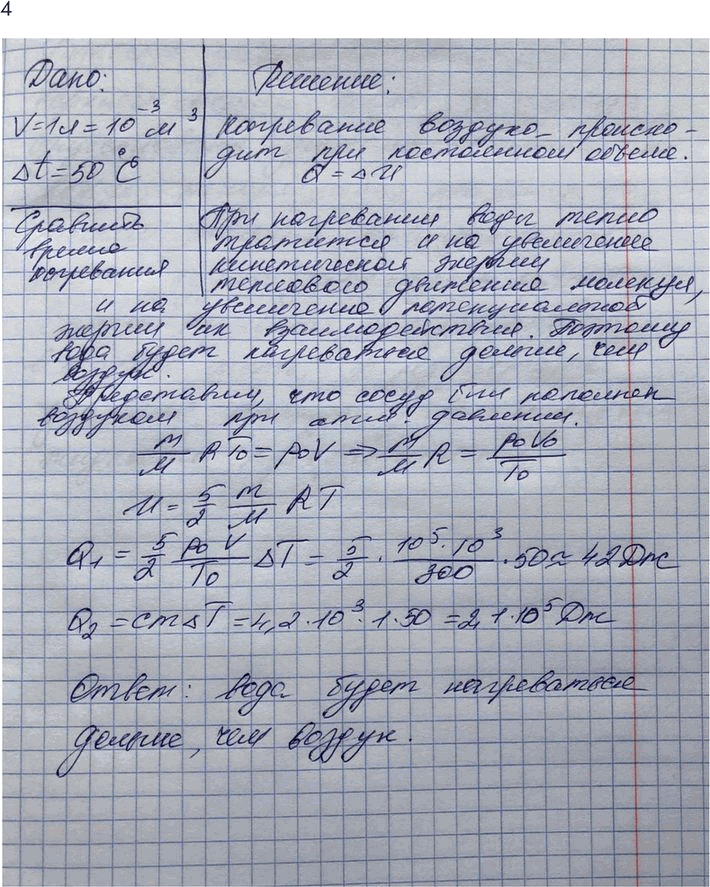 4
Дано:
V=1л=10⁻³ м³
Δt=50°C
Сравнить
время
нагревания
Решение:
Нагревание воздуха происхо-
дит при постоянном объеме.
Q = ΔU
При нагревании воды тепло
тратится и на увеличение
кинетической энергии
теплового движения молекул,
и на увеличение потенциальной
энергии их взаимодействия. Поэтому
вода будет нагреваться дольше, чем
воздух.
Представим, что сосуд был наполнен
воздухом при атм. давлении.
m/M RT₀ = p₀V ⇒ m/M R = p₀V₀/T₀
U = 5/2 m/M RT
Q₁ = 5/2 p₀V/T₀ ΔT = 5/2 · 10⁵·10³/300 · 50 ≈ 42 Дж
Q₂ = cmΔT = 4,2·10³·1·50 = 2,1·10⁵ Дж
Ответ: вода будет нагреваться
дольше, чем воздух.